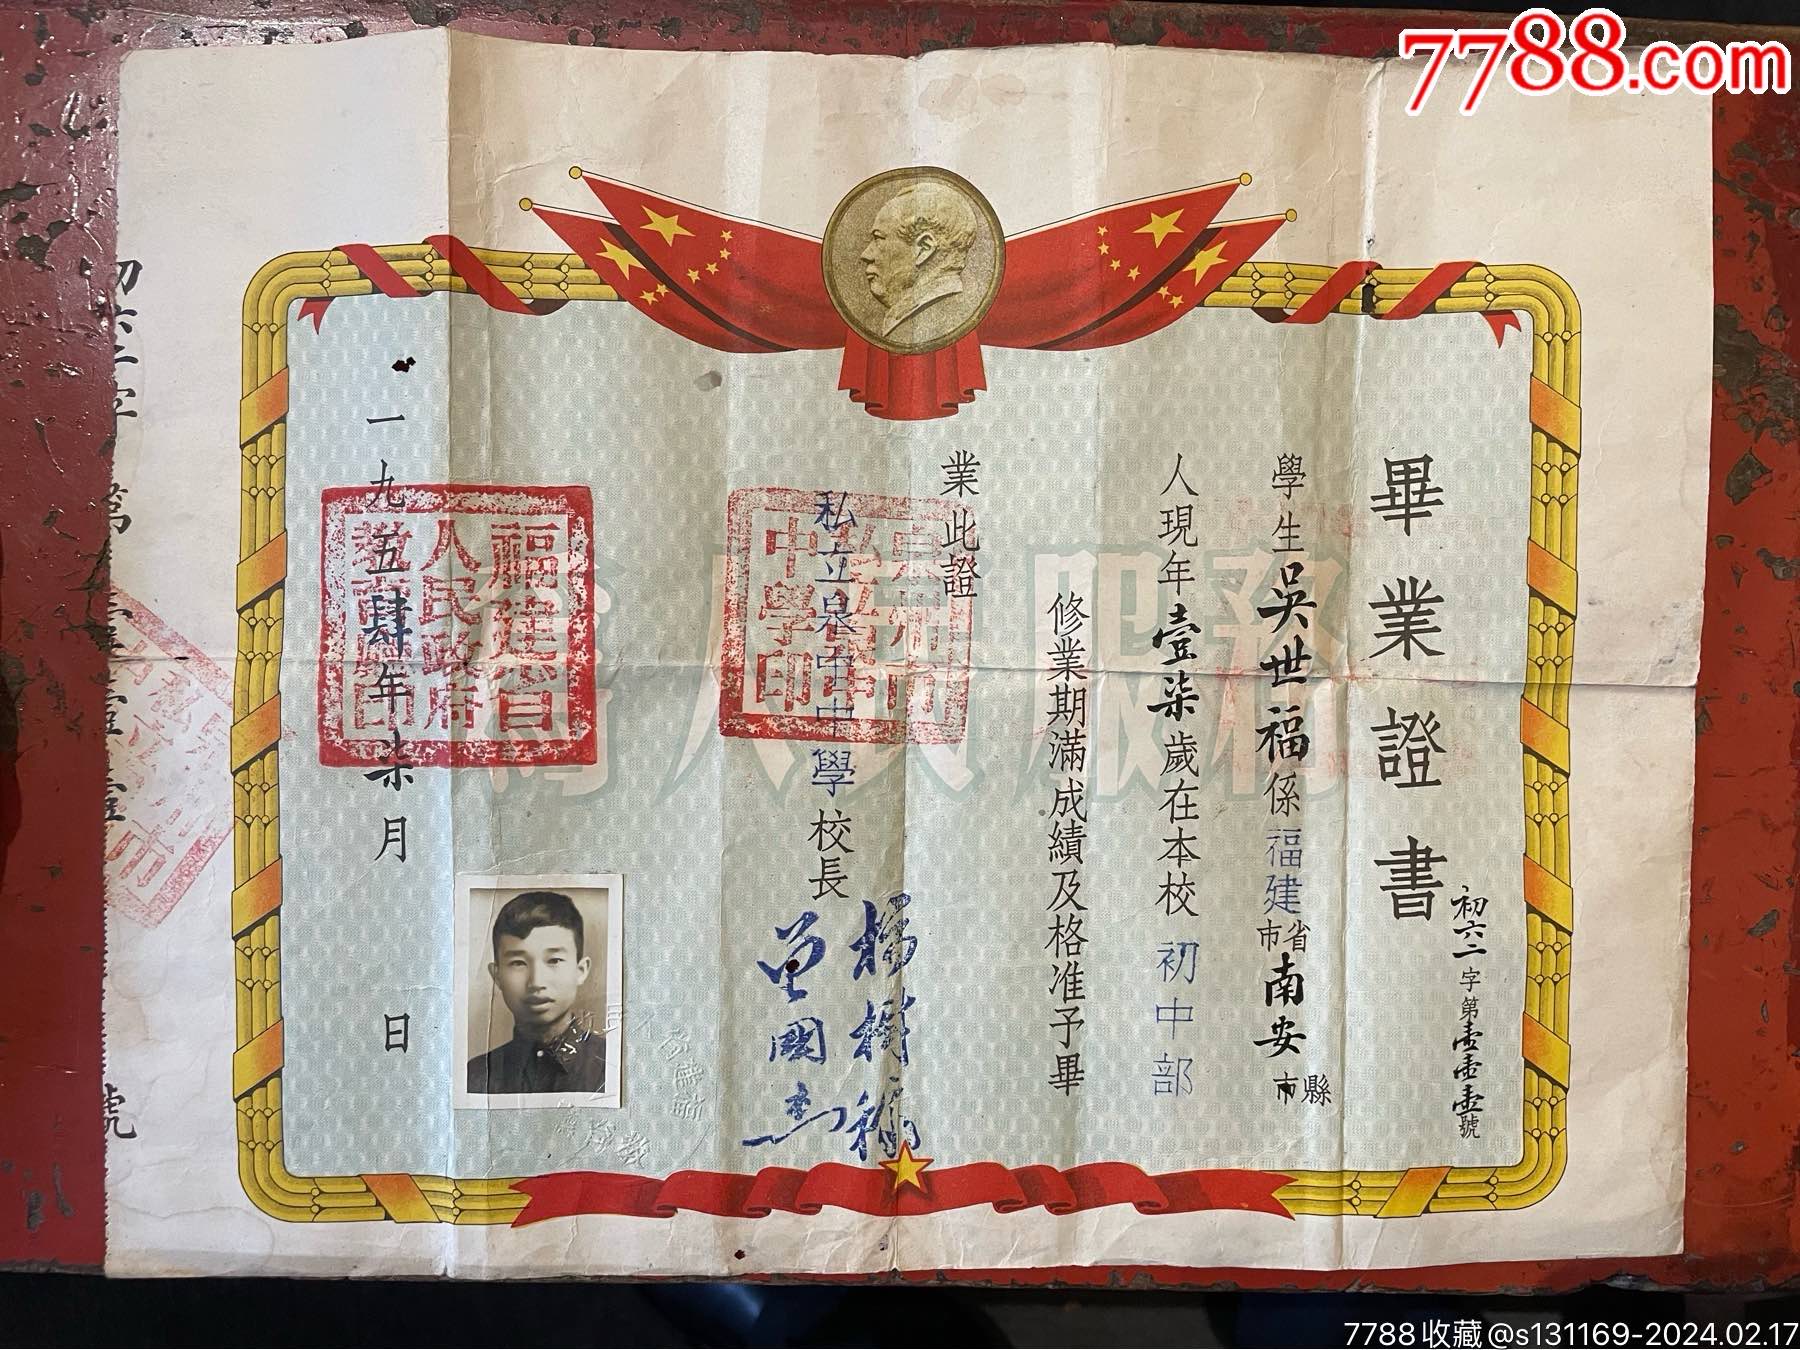 7788.com
畢業證書
初六二字第壹壹壹號
學生吳世福係福建省市南安縣市
人現年壹柒歲在本校初中部
修業期滿成績及格准予畢
業此證
為人民服務
私立泉中中學校長
中學印
福建省
人民政府
教育廳印
一九五肆年柒月 日
初六二字第壹壹壹號
7788收藏@s131169-2024.02.17